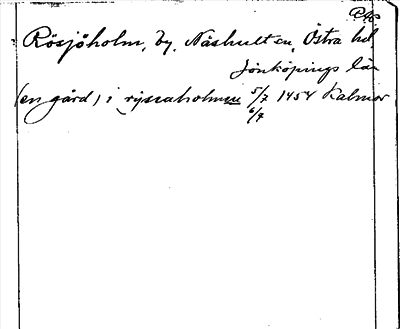 Rösjöholm, by, Näshult sn, Östra hd
Jönköpings län
(en gård) i ryssaholmm 5/7 1454 Kalmar
6/7